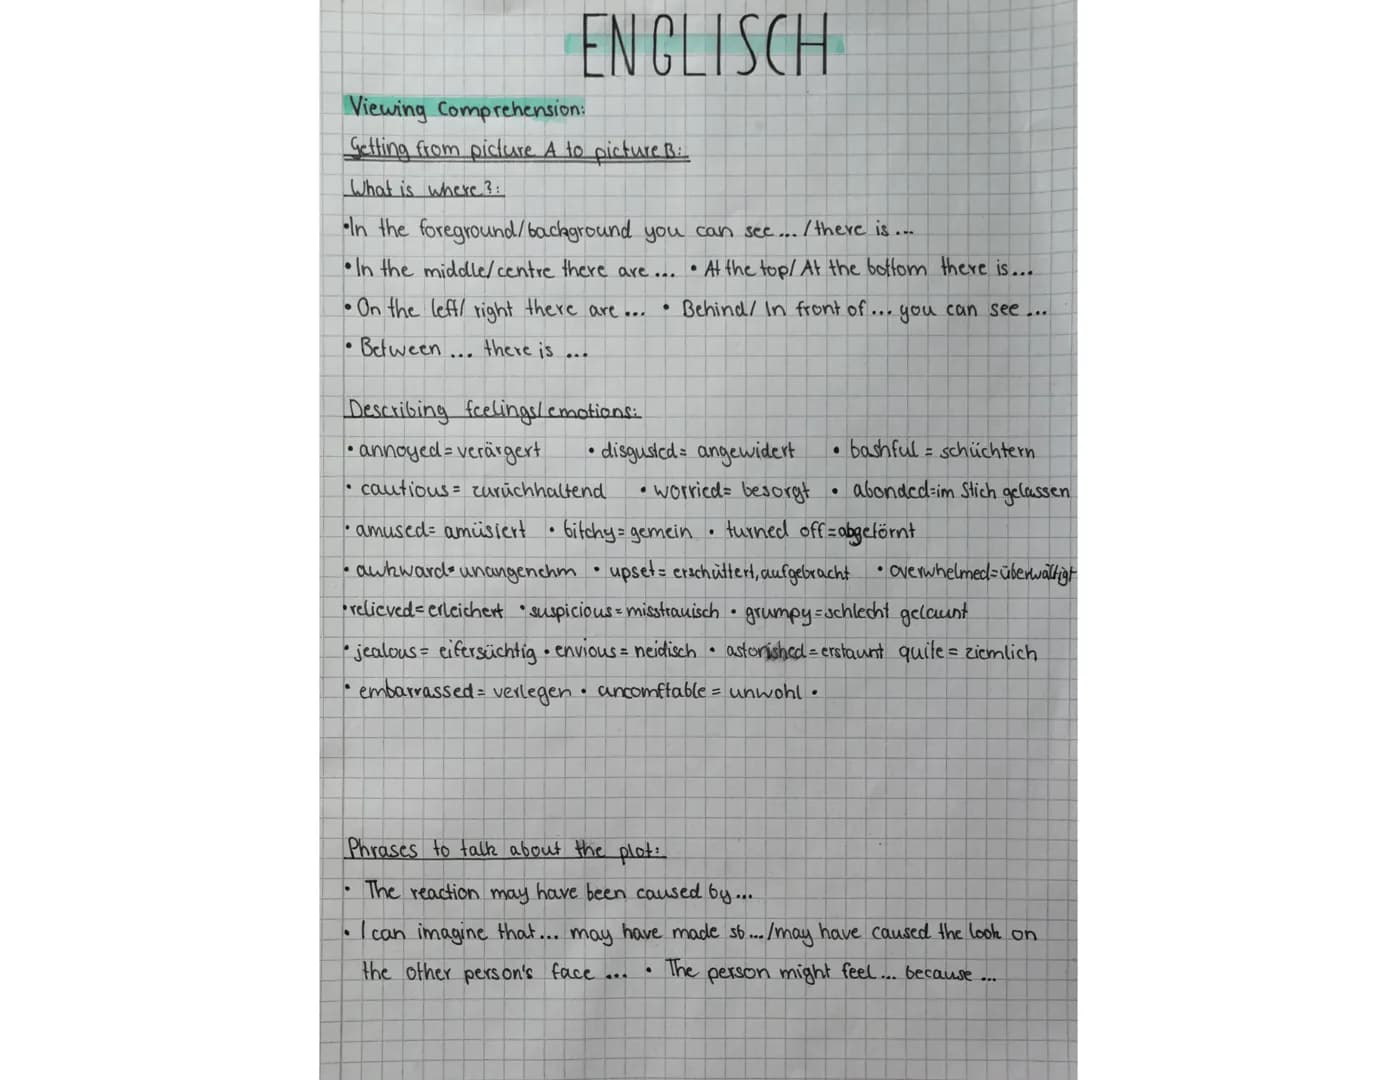 ENGLISCH
Viewing Comprehension:
Getting from picture A to picture B:
What is where?:
•In the foreground/background you can see... /there is ...
•In the middle/centre there are ... • At the top/ At the bottom there is...
• On the left/ right there are ... • Behind/ In front of ... you can see ...
• Between ... there is ...
Describing feelings/emotions:
• annoyed = verärgert • disgusted = angewidert • bashful = schüchtern
• cautious = zurückhaltend • worried = besorgt • abonded=im Stich gelassen
• amused= amüsiert • bitchy= gemein • turned off=abgetörnt
• awkward= unangenehm • upset= erschüttert, aufgebracht • overwhelmed=überwältigt
•relieved= erleichert • suspicious = misstrauisch • grumpy=schlecht gelaunt
• jealous = eifersüchtig • envious = neidisch • astonished = erstaunt quite = ziemlich
• embarrassed = verlegen • uncomftable = unwohl •
Phrases to talk about the plot:
• The reaction may have been caused by ...
• I can imagine that ... may have made sb ... /may have caused the look on
the other person's face ... • The person might feel ... because ...